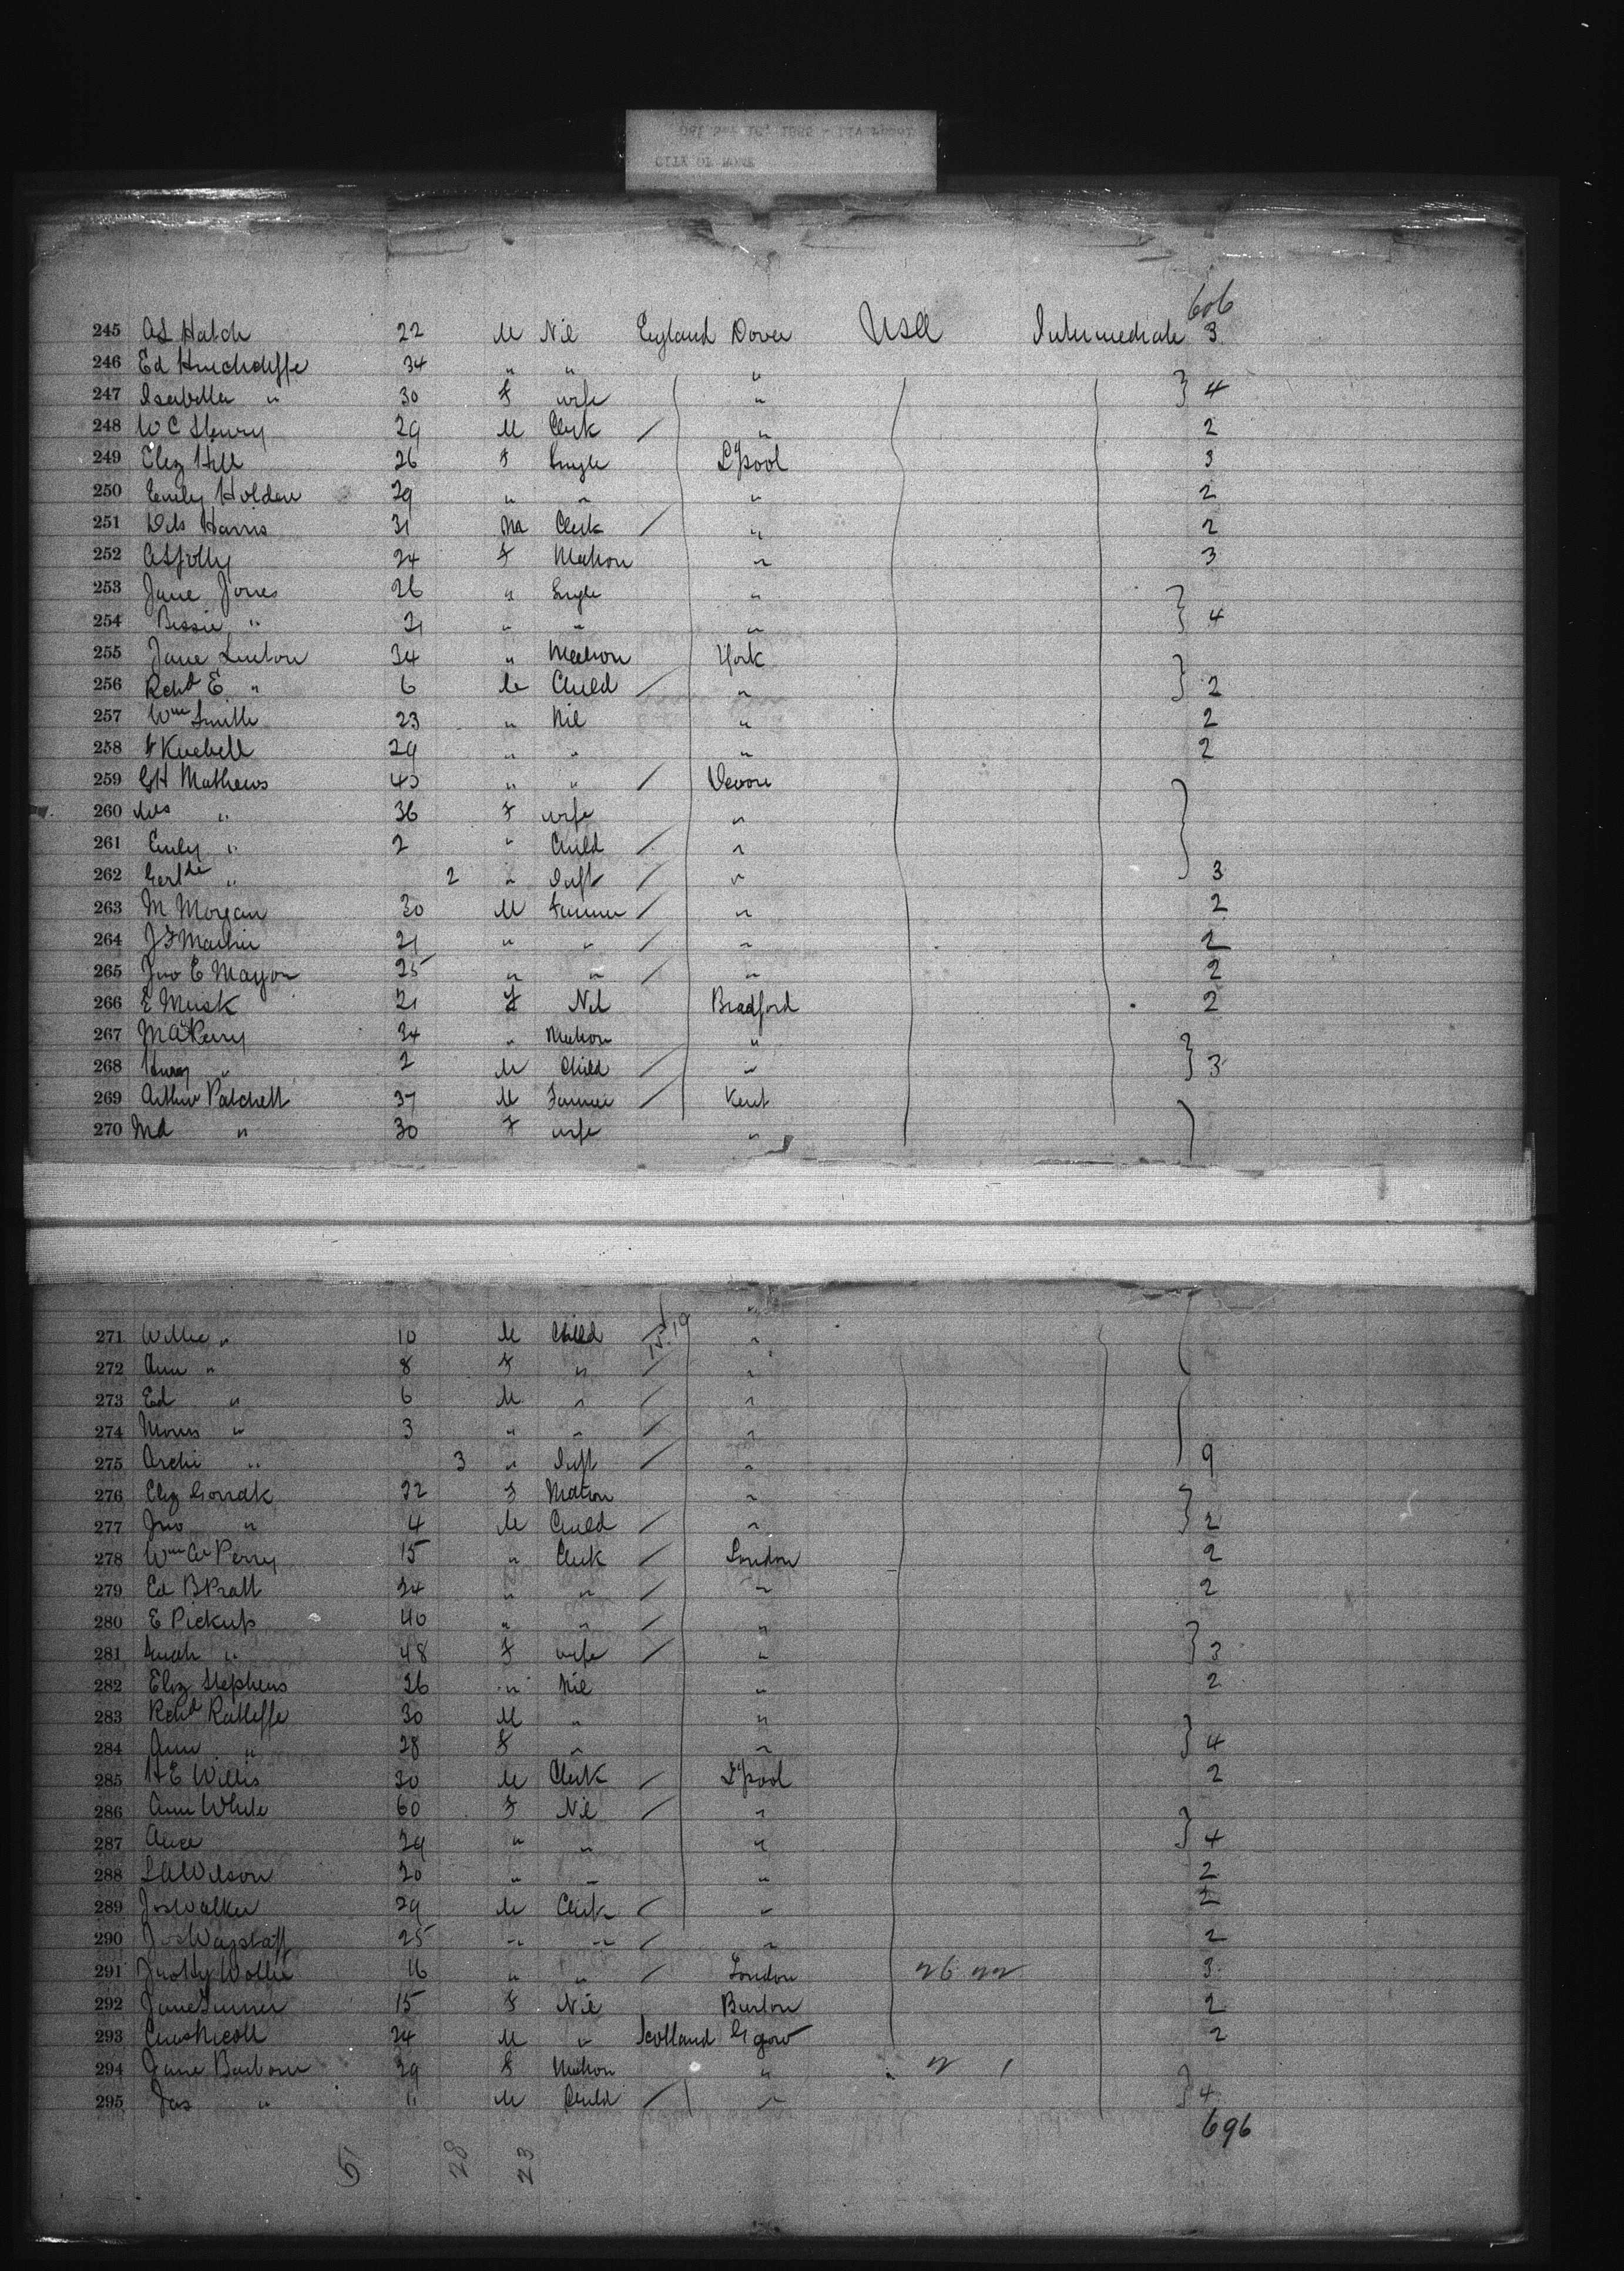 CITY OF ROME
606
245 AL Hatch 22 M Nil England Dover USA Intermediate 3
246 Ed Hinchcliffe 34 " " "
247 Isabella " 30 F wife " } 4
248 W C Henry 29 M Clerk / " 2
249 Eliz Hill 26 F Single L'pool 3
250 Emily Holden 29 " " " 2
251 Harris 31 M Clerk / " 2
252 A S Jolly 24 F Matron " 3
253 Jane Jones 26 " Single "
254 Bessie " 21 " " " } 4
255 Jane Linton 34 " Matron York
256 Richd E " 6 M Child / " } 2
257 Wm Smith 23 " Nil " 2
258 29 " " " 2
259 G H Mathews 40 " " / Devon
260 Mrs " 36 F wife "
261 Emily " 2 " Child / "
262 " 2 " Inft / " 3
263 M Morgan 30 M Farmer / " 2
264 J F Martin 21 " " / " 2
265 Jno E Mayor 25 " " / " 2
266 E Musk 21 F Nil Bradford 2
267 M A Perry 24 " Matron "
268 Harry " 2 M Child / " } 3
269 Arthur Patchett 37 M Farmer / Kent
270 " 30 F wife "
271 Willie " 10 M Child / "
272 Ann " 8 F " / "
273 Ed " 6 M " / "
274 Morris " 3 " " / "
275 Archi " 3 " Inft / " 9
276 Eliz 22 F Matron "
277 Jno " 4 M Child / " } 2
278 Wm Perry 15 " Clerk / London 2
279 Ed B Pratt 24 " " / " 2
280 E Pickup 40 " " / "
281 Sarah " 48 F wife / " } 3
282 Eliz Stephens 26 " Nil " 2
283 Richd Ratcliffe 30 M " "
284 Ann " 28 F " " } 4
285 H E Willis 30 M Clerk / L'pool 2
286 Ann White 60 F Nil / "
287 Alice 29 " " " } 4
288 L A Wilson 20 " " " 2
289 Jos Walker 29 M Clerk / " 2
290 Jos Wagstaff 25 " " / " 2
291 16 " " / London 3
292 Jane Turner 15 F Nil Burton 2
293 Chas Nicoll 24 M " Scotland Ggow 2
294 Jane Barbour 29 F Matron "
295 Jas " 11 M Child / " } 4
696
5 28 23